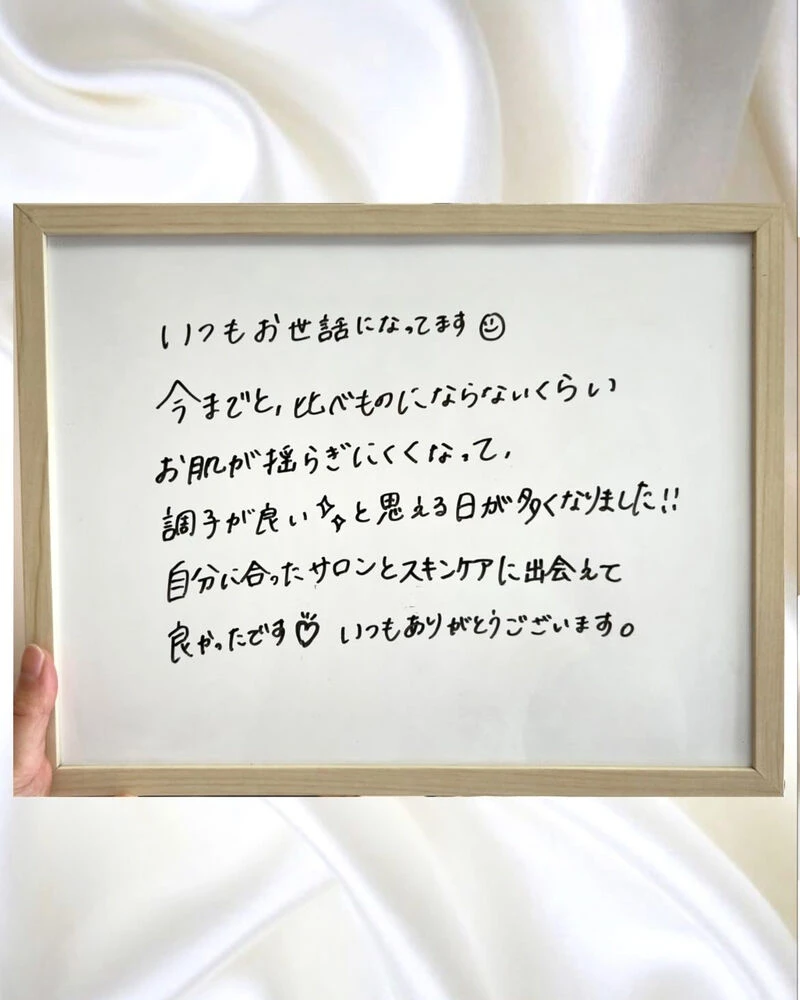 いつもお世話になってます☺
今までと、比べものにならないくらい
お肌が揺らぎにくくなって、
調子が良い✨と思える日が多くなりました!!
自分に合ったサロンとスキンケアに出会えて
良かったです♡ いつもありがとうございます。